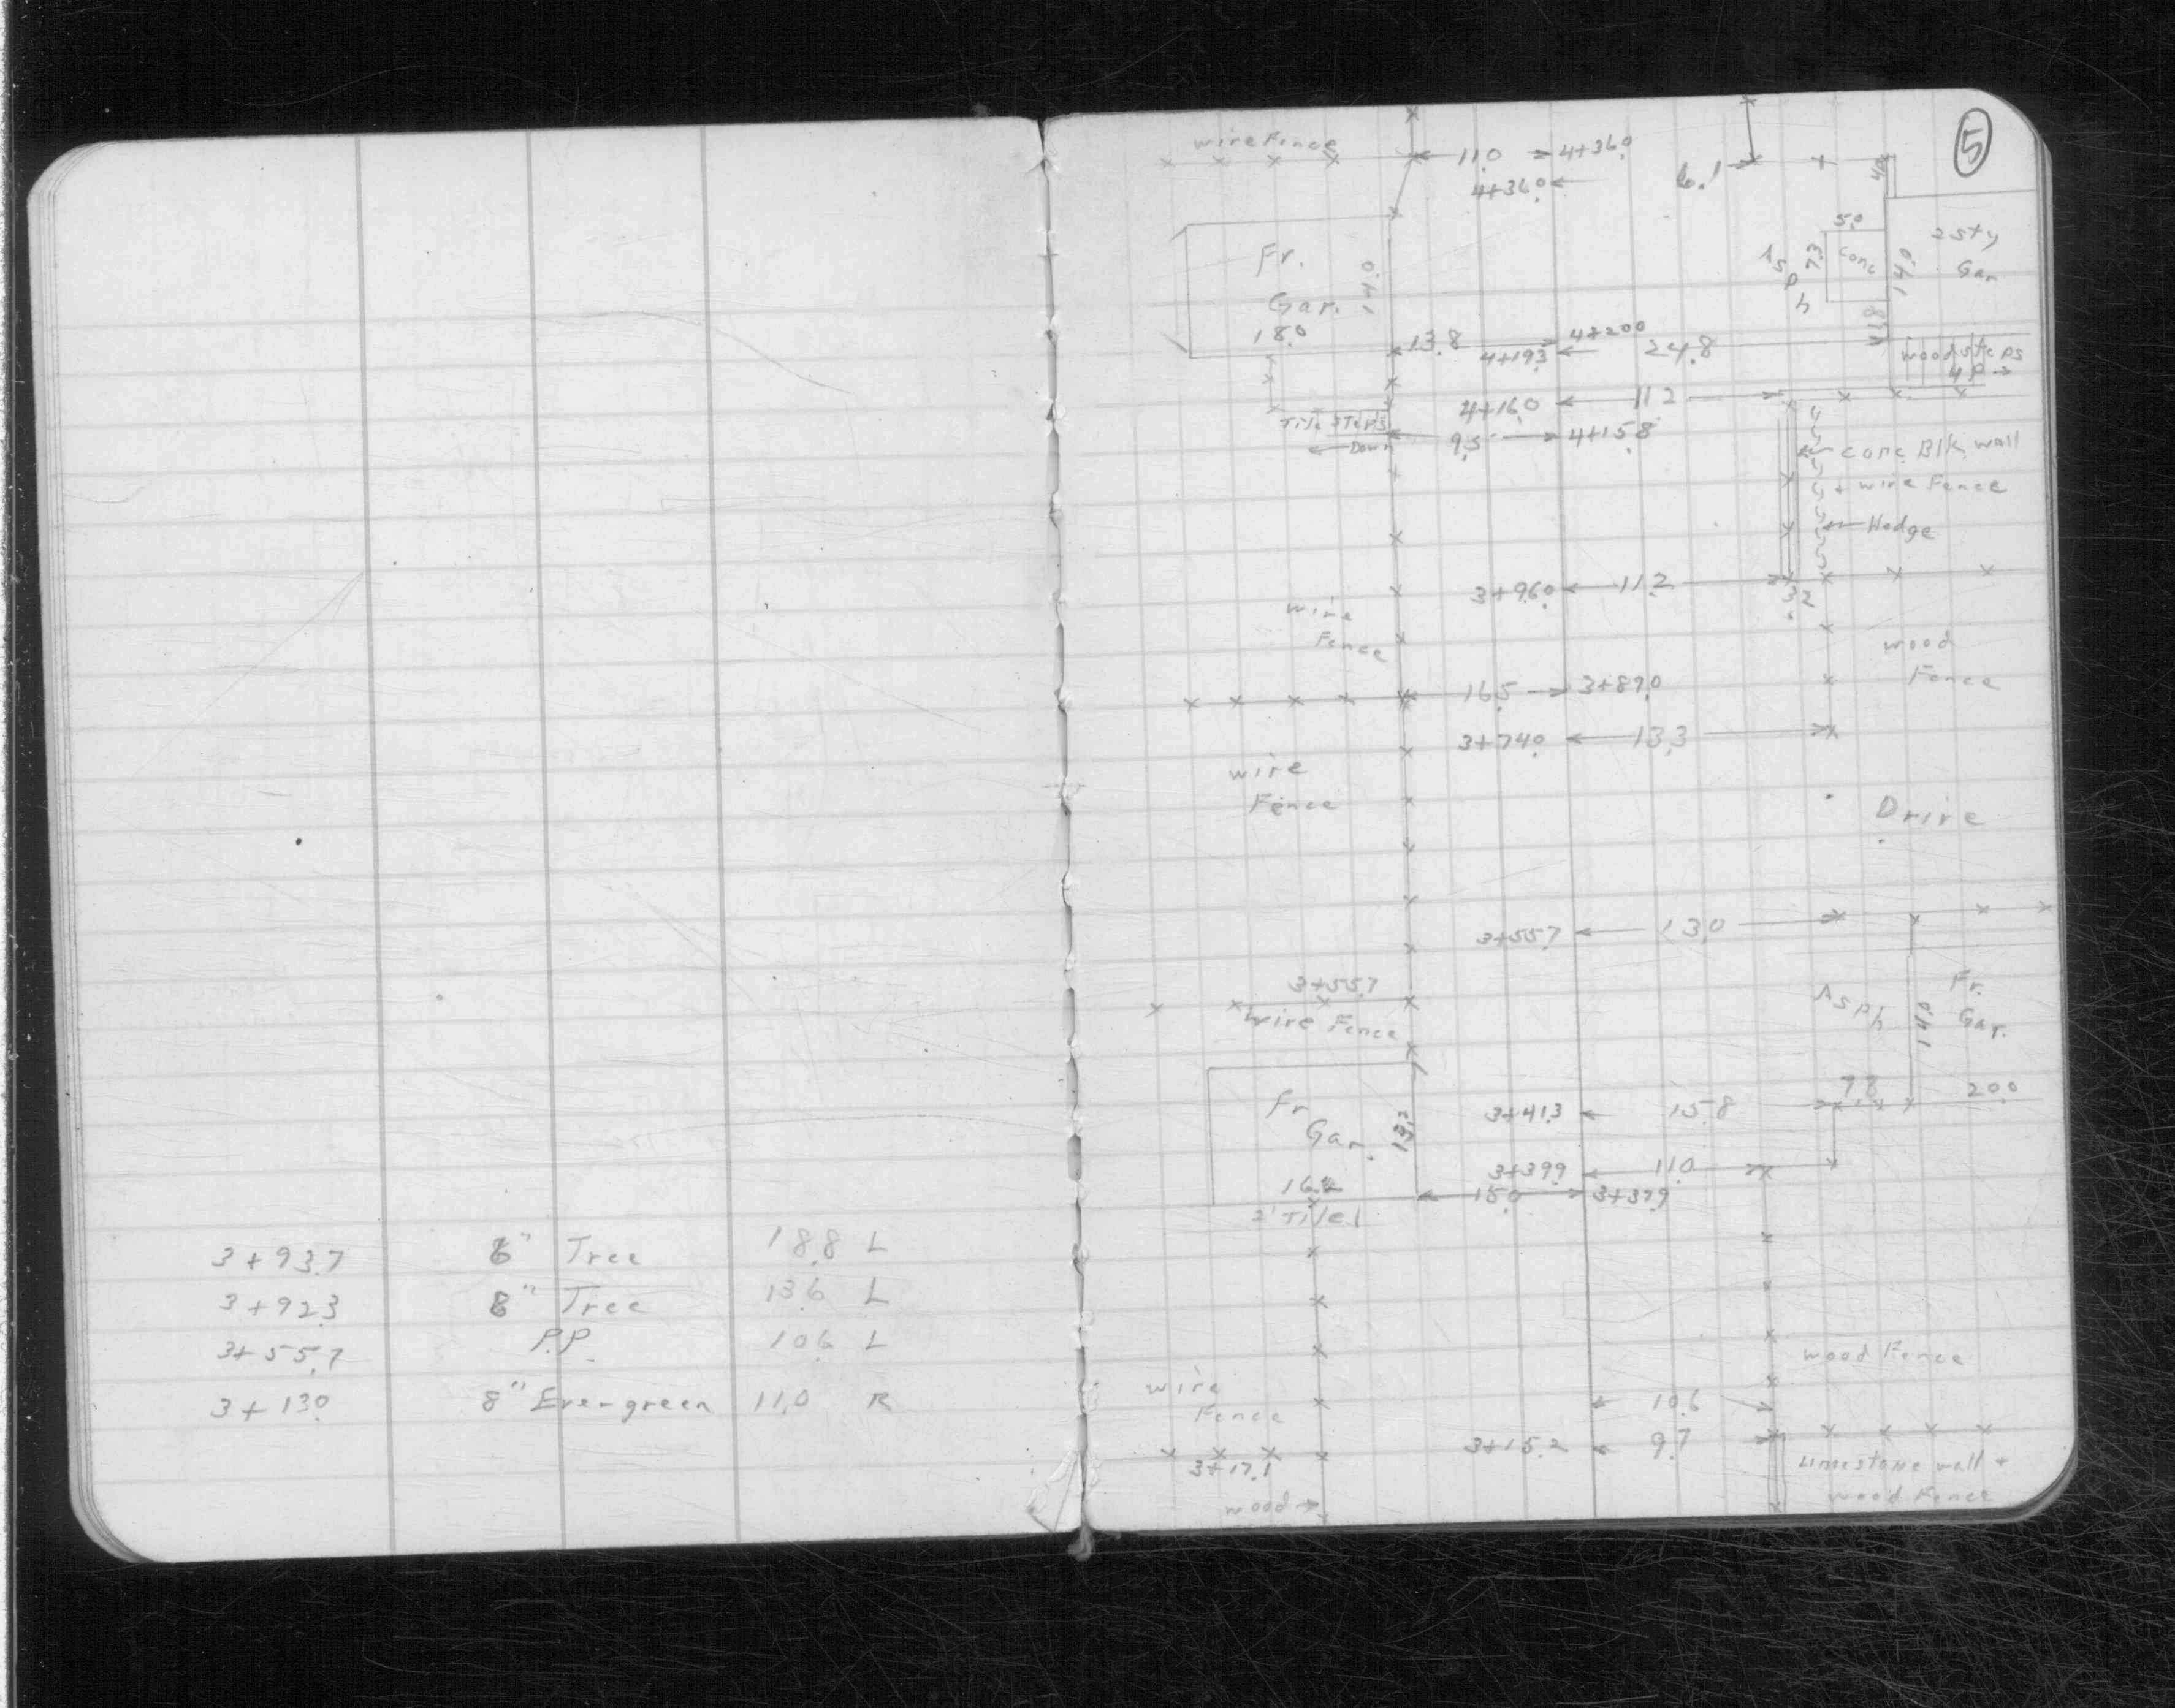 3+93.7 6" Tree 18.8 L
3+92.3 8" Tree 13.6 L
3+55.7 P.P. 10.6 L
3+13.0 8" Evergreen 11.0 R
5
wire Fence
11.0 4+36.0
4+36.0 6.1
4.0
5.0
2 sty
Gar
Fr.
Gar.
14.0
18.0
Asph
7.3
Conc
14.0
11.8
13.8 4+20.0
4+19.3 24.8
wood steps
4+16.0 11.2
Tile Steps
Down
9.5 4+15.8
conc. Blk. wall
+ wire Fence
Hedge
3+96.0 11.2
3.2
wire
Fence
wood
Fence
16.5 3+89.0
3+74.0 13.3
wire
Fence
Drive
3+55.7 13.0
3+55.7
wire Fence
Asph
14.0
Fr.
Gar.
7.8 20.0
Fr
Gar.
3+41.3 15.8
3+39.9 11.0
16.2
15.0 3+37.9
2' Tile
wood Fence
wire
Fence
10.6
3+15.2 9.7
3+17.1
Limestone wall +
wood Fence
wood